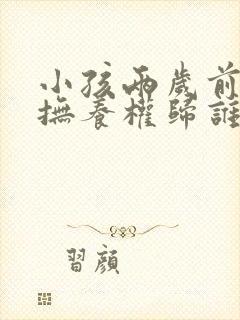 小孩兩歲前
撫養權歸誰
習顏